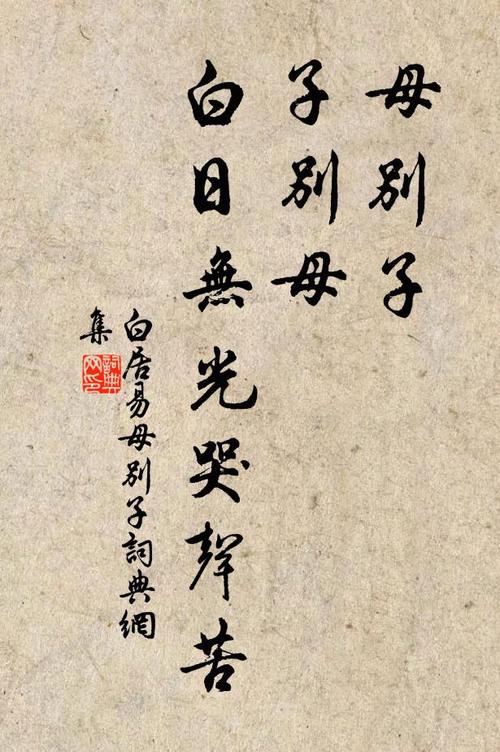 母別子
子別母
白日無光哭聲苦
白居易母別子詞典網
集
詞典網印